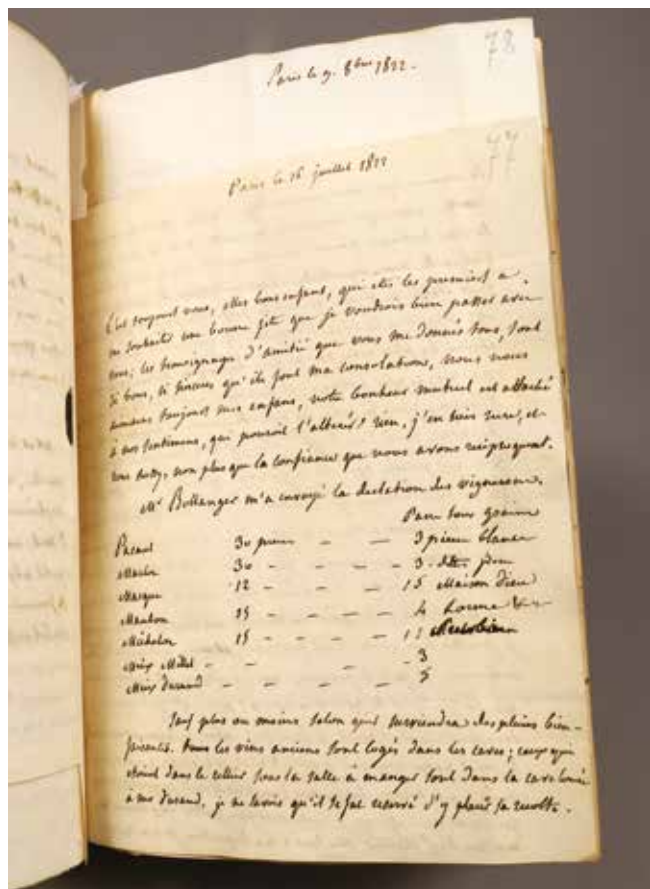 78
Paris le 9. 8bre 1822.
77
Paris le 16 juillet 1822
C'est toujours vous, mes bons enfans, qui etes les premiers a
me souhaiter une bonne fête que je voudrois bien passer avec
vous; les temoignages d'amitié que vous me donnés tous, sont
si bons, si sinceres qu'ils font ma consolation, nous nous
aimerons toujours mes enfans, notre bonheur mutuel est attaché
à nos sentimens, qui pouroit l'alterér? rien, j'en suis sure, et
vous aussy, non plus que la confiance que nous avons reciproquement.
Mr Bollanger m'a envoyé la declation des vignerons.
Pour tous grains
Pacaut 30 pieces - - 3 pieces blanc
30 - - - - 3
Masque 12 - - - - 15 Maison Dieu
Manton 15 - - - - 4
Michelon 15 - - - -
Meix Millet - - - - 3
Meix Durand - - - - 5
Sauf plus ou moins selon qu'il surviendra des pluies bien-
faisantes. tous les vins anciens sont logés dans les caves; ceux qui
etoient dans le cellier sous la salle à manger sont dans la cave louée
à mr Durand, je ne savois qu'il se fut reservé d'y placer sa recolte.